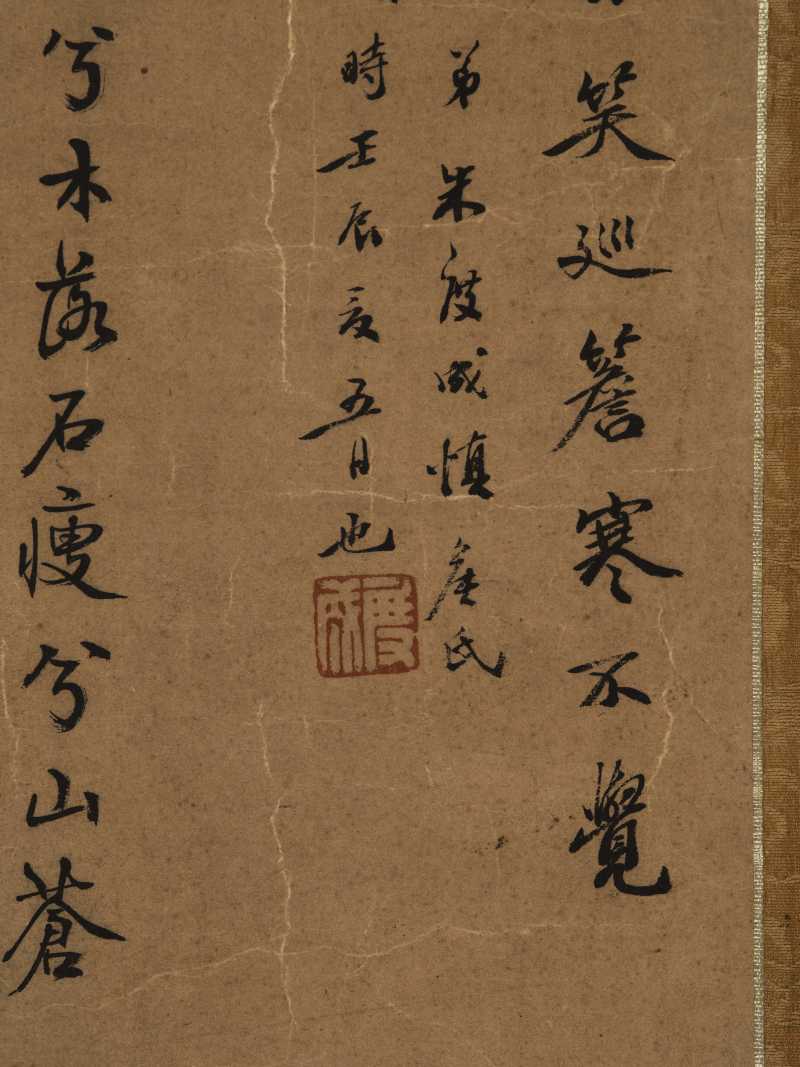 笑巡簷寒不覺
弟朱度成慎氏
時壬辰夏五日也
兮木落石瘦兮山蒼